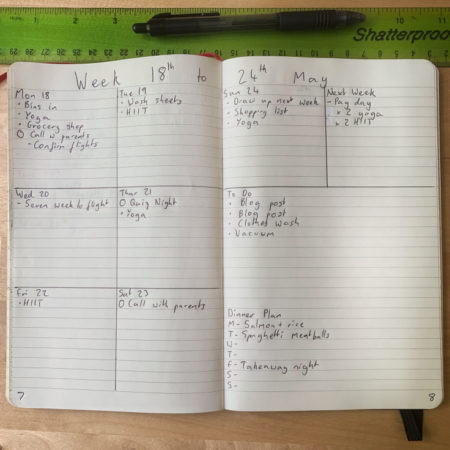 Shatterproof
Week 18th to 24th May
Mon 18
· Bins in
· Yoga
· Grocery shop
O Call w parents
- Confirm flights
Tue 19
· Wash sheets
· HIIT
Wed 20
- Seven weeks to flight
Thur 21
O Quiz Night
· Yoga
Fri 22
· HIIT
Sat 23
O Call with parents
7
Sun 24
· Draw up next week
· Shopping list
· Yoga
Next Week
- Pay day
x 2 yoga
x 2 HIIT
To Do
· Blog post
· Blog post
· Clothes wash
· Vacuum
Dinner Plan
M- Salmon + rice
T- Spaghetti meatballs
W-
T-
F- Takeaway night
S-
S-
8